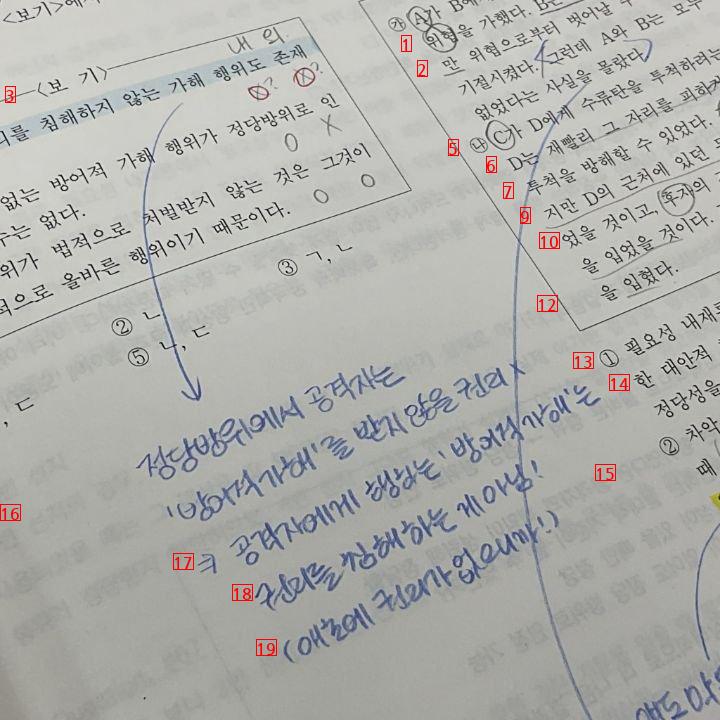 <보기>에
<보 기>
내 외
리를 침해하지 않는 가해 행위도 존재
없는 방어적 가해 행위가 정당방위로 인
수는 없다.
위가 법적으로 처벌받지 않는 것은 그것이
적으로 올바른 행위이기 때문이다.
② ㄴ
③ ㄱ, ㄴ
, ㄷ
⑤ ㄴ, ㄷ
㉮ A가 B에
위협을 가했다. B는
만 위협으로부터 벗어날 수
기절시켰다. 그런데 A와 B는 모두
없었다는 사실을 몰랐다.
㉯ C가 D에게 수류탄을 투척하려는
D는 재빨리 그 자리를 피하지
투척을 방해할 수 있었다.
지만 D의 근처에 있던
었을 것이고, 후자의
을 입었을 것이다.
을 입혔다.
① 필요성 내재
한 대안적
정당성을
② 차악
때
정당방위에서 공격자는
'방어적 가해'를 받지 않을 권리 x
⇒ 공격자에게 행하는 '방어적 가해'는
권리를 침해하는 게 아님!
(애초에 권리가 없으니까!)
1
2
3
5
6
7
9
10
12
13
14
15
16
17
18
19